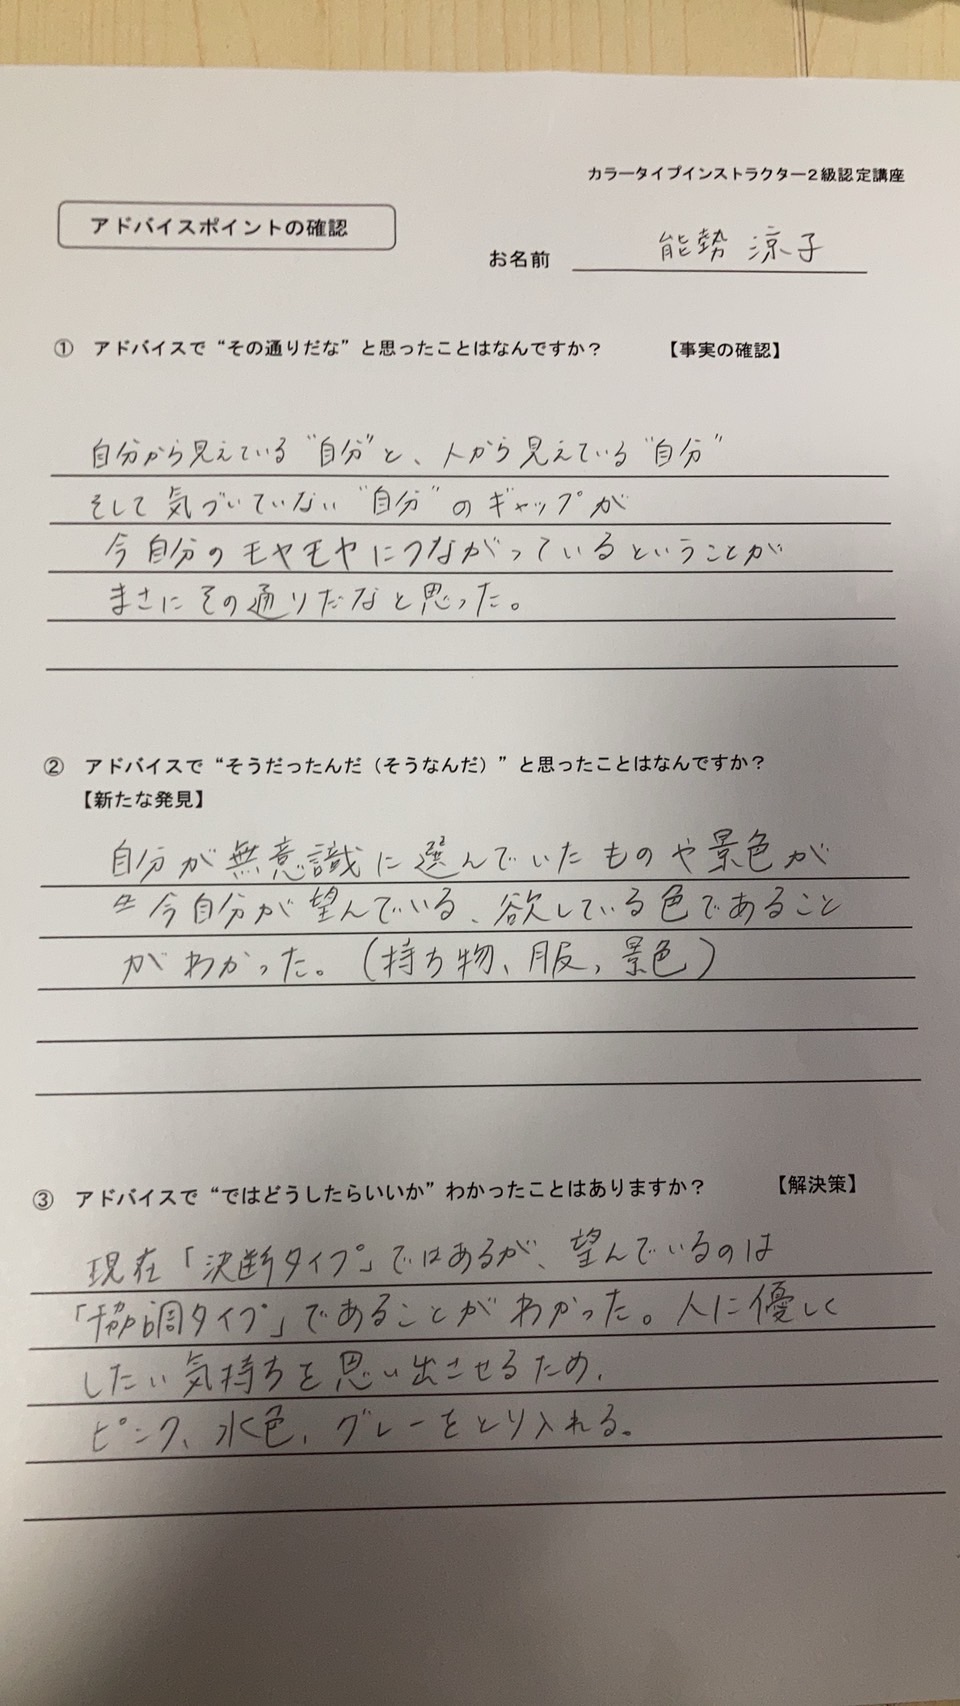 カラータイプインストラクター2級認定講座
アドバイスポイントの確認
お名前 能勢 涼子
① アドバイスで“その通りだな”と思ったことはなんですか？ 【事実の確認】
自分から見えている"自分"と、人から見えている"自分"
そして気づいていない"自分"のギャップが
今自分のモヤモヤにつながっているということが
まさにその通りだなと思った。
② アドバイスで“そうだったんだ（そうなんだ）”と思ったことはなんですか？
【新たな発見】
自分が無意識に選んでいたものや景色が
今自分が望んでいる、欲している色であること
がわかった。(持ち物、服、景色)
③ アドバイスで“ではどうしたらいいか”わかったことはありますか？ 【解決策】
現在「決断タイプ」ではあるが、望んでいるのは
「協調タイプ」であることがわかった。人に優しく
したい気持ちを思い出させるため、
ピンク、水色、グレーをとり入れる。